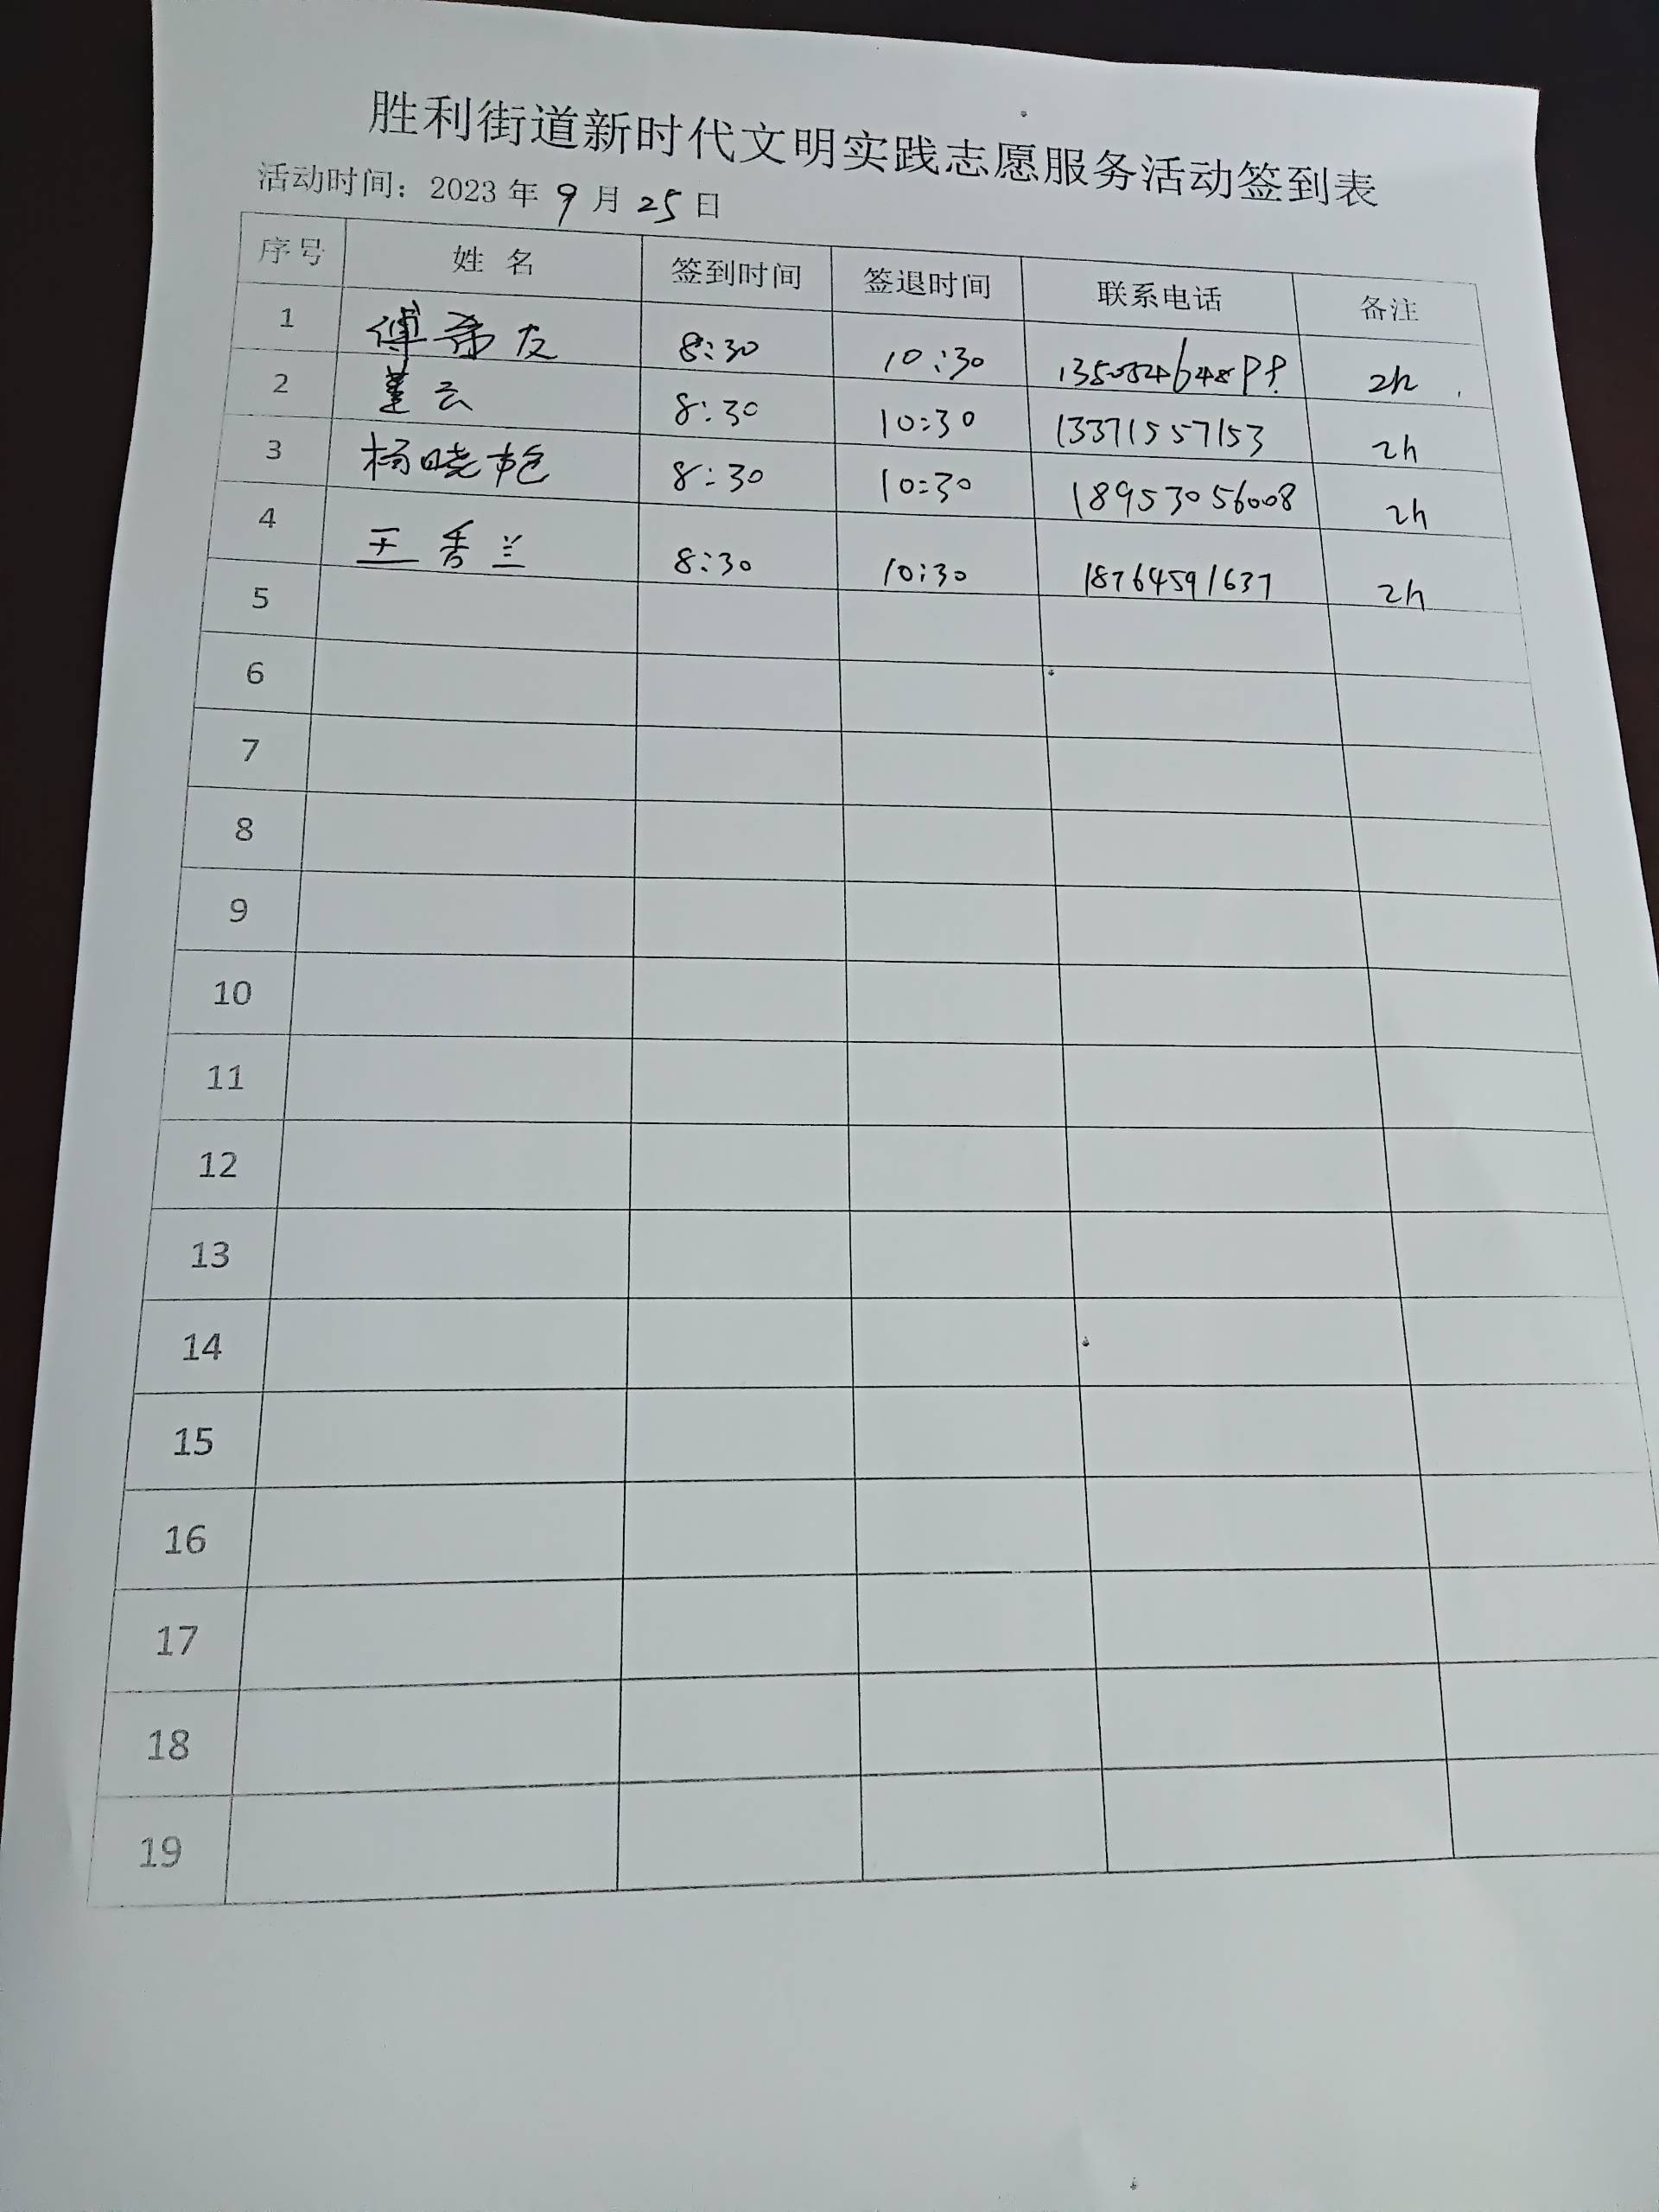 胜利街道新时代文明实践志愿服务活动签到表
活动时间：2023 年 9 月 25 日
序号 姓 名 签到时间 签退时间 联系电话 备注
1 傅希友 8:30 10:30 2h
2 董云 8:30 10:30 13371557153 2h
3 杨晓艳 8:30 10:30 18953056008 2h
4 王香兰 8:30 10:30 18764591637 2h
5
6
7
8
9
10
11
12
13
14
15
16
17
18
19